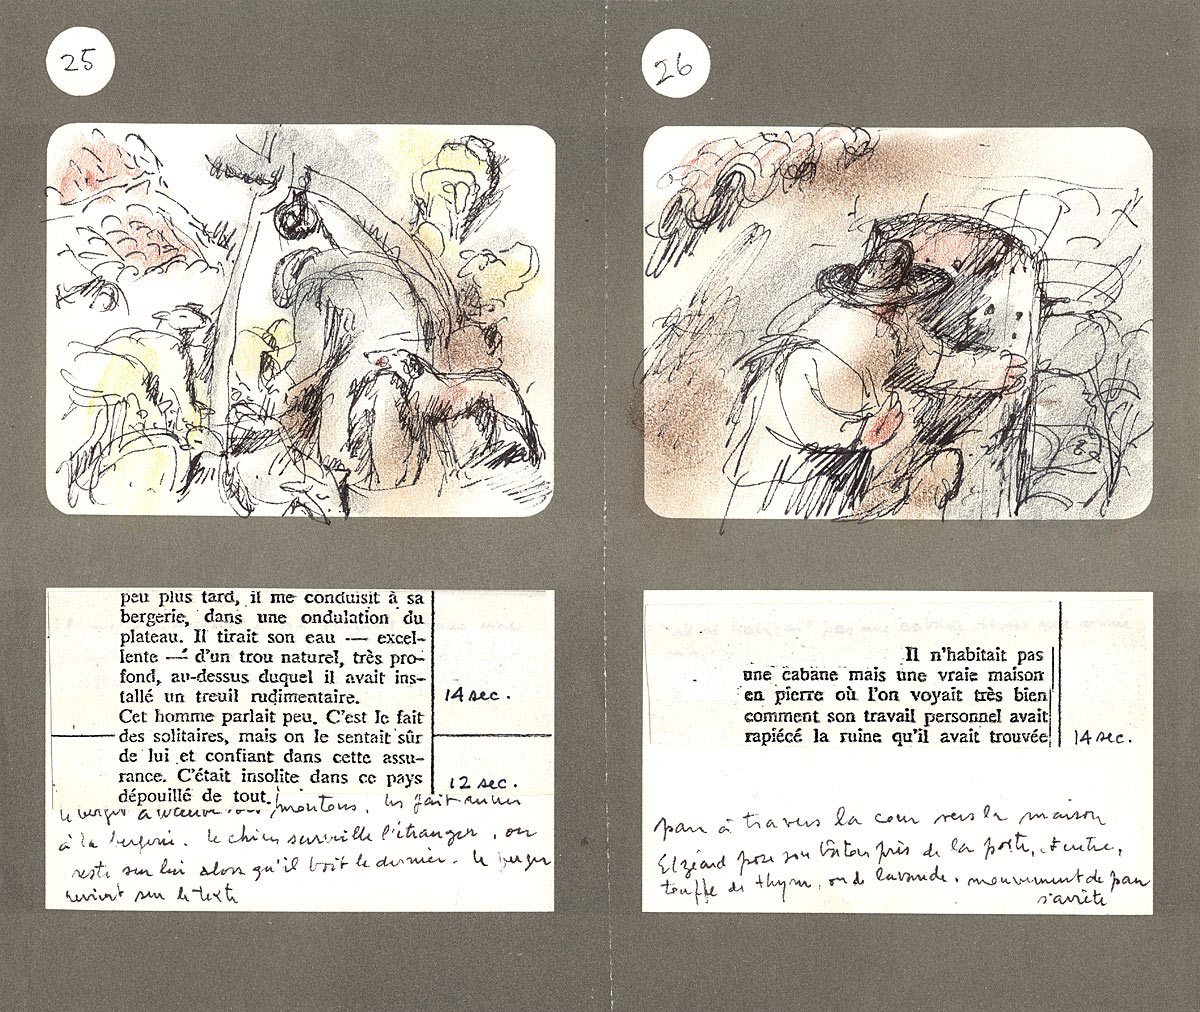 25
peu plus tard, il me conduisit à sa
bergerie, dans une ondulation du
plateau. Il tirait son eau — excel-
lente — d'un trou naturel, très pro-
fond, au-dessus duquel il avait ins-
tallé un treuil rudimentaire.
14 sec.
Cet homme parlait peu. C'est le fait
des solitaires, mais on le sentait sûr
de lui et confiant dans cette assu-
rance. C'était insolite dans ce pays
dépouillé de tout.
12 sec.
le berger a moutons. les fait
à la bergerie. le chien surveille l'étranger, on
reste sur lui alors qu'il boit le dernier. le berger
revient sur le texte
26
Il n'habitait pas
une cabane mais une vraie maison
en pierre où l'on voyait très bien
comment son travail personnel avait
rapiécé la ruine qu'il avait trouvée
14 sec.
pan à travers la cour vers la maison
Elzéard pose son bâton près de la porte, et entre,
touffe de thym, ou de lavande. mouvement de pan
s'arrête